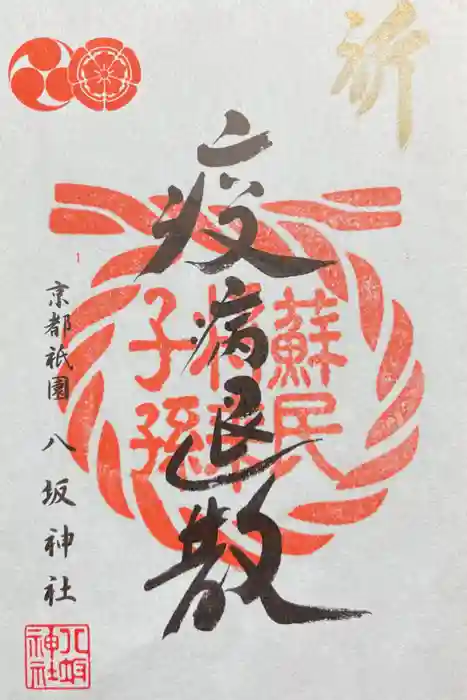 祈
蘇民
将来
子孫
疫病退散
京都祇園 八坂神社
八坂
神社